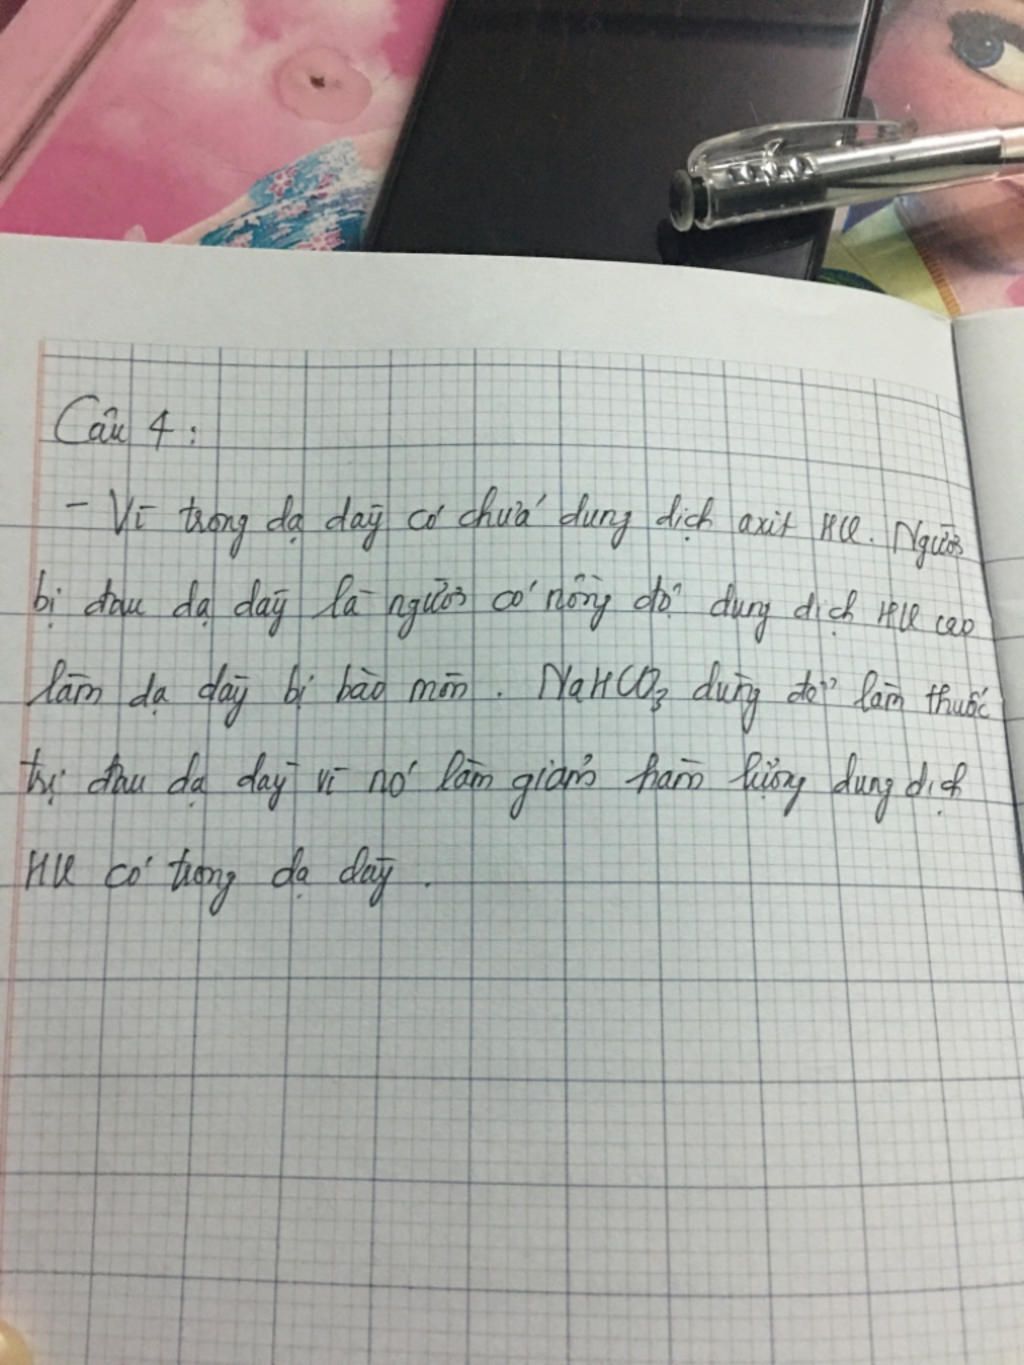 Câu 4 :
- Vì trong dạ dày có chứa dung dịch axit HCl. Người
bị đau dạ dày là người có nồng độ dung dịch HCl cao
làm dạ dày bị bào mòn. NaHCO₃ dùng để làm thuốc
trị đau dạ dày vì nó làm giảm hàm lượng dung dịch
HCl có trong dạ dày.